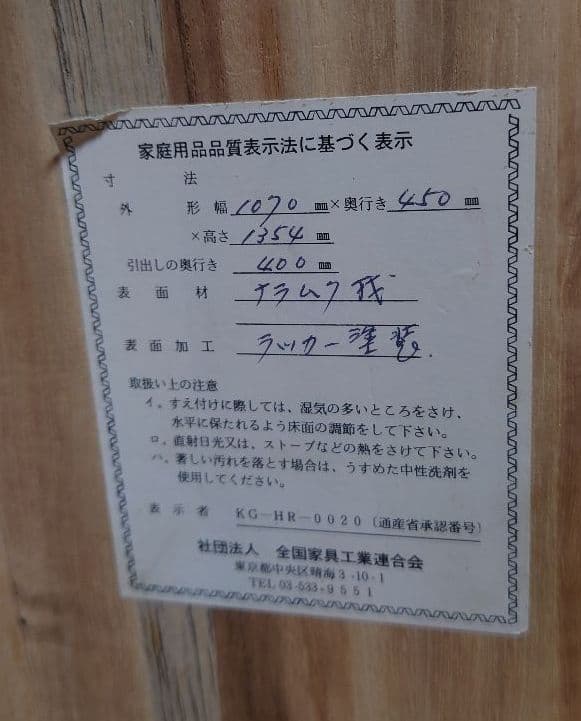 家庭用品品質表示法に基づく表示
寸法
外形幅 1070 ㎜×奥行き 450 ㎜
×高さ 1354 ㎜
引出しの奥行き 400 ㎜
表面材 ナラムク
表面加工 ラッカー塗装.
取扱い上の注意
イ. すえ付けに際しては、湿気の多いところをさけ、
水平に保たれるよう床面の調節をして下さい。
ロ. 直射日光又は、ストーブなどの熱をさけて下さい。
ハ. 著しい汚れを落とす場合は、うすめた中性洗剤を
使用してください。
表示者 KG−HR−0020(通産省承認番号)
社団法人 全国家具工業連合会
東京都中央区晴海3-10-1
TEL 03-533-9551